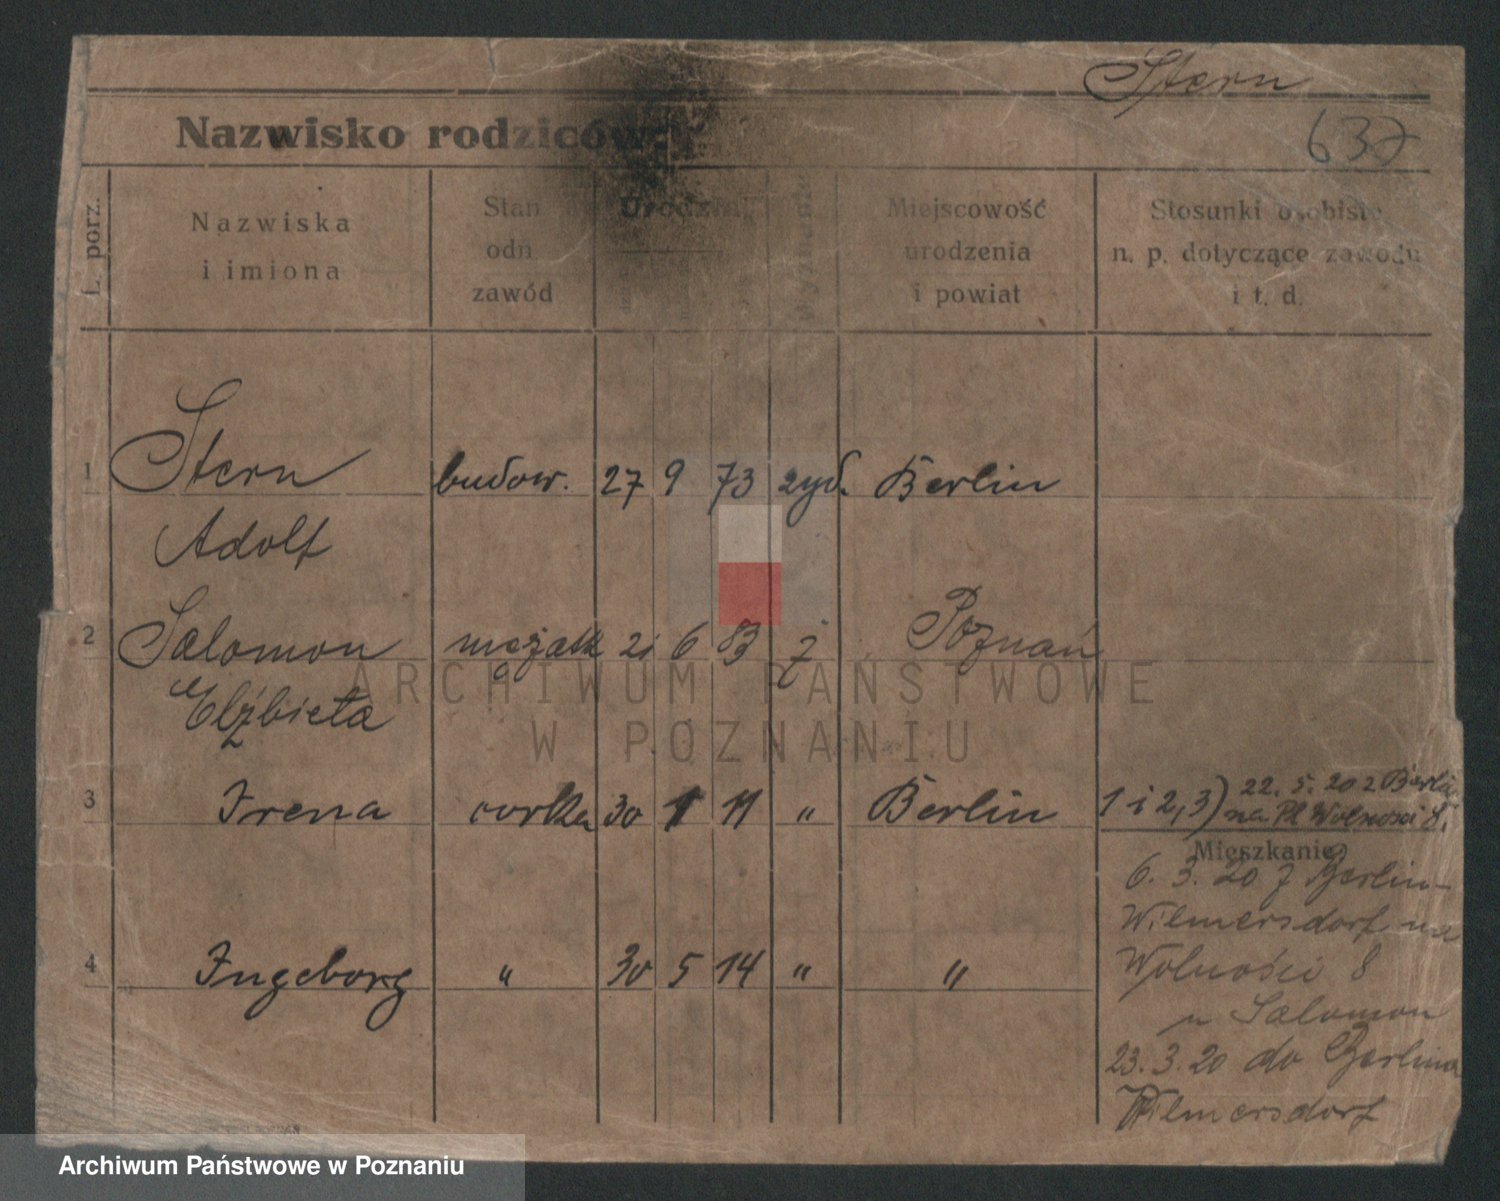 Stern
637
Nazwisko rodziców:
L. porz.
Nazwiska
i imiona
Stan
odn
zawód
Urodzin
Wyznanie
Miejscowość
urodzenia
i powiat
Stosunki osobiste
n. p. dotyczące zawodu
i t. d.
1 Stern budow. 27 9 73 żyd. Berlin
Adolf
2 Salomon mężatk 21 6 83 ż Poznań
Elżbieta
3 Irena corka 30 1 11 " Berlin
1 i 2, 3) 22. 5. 20 z Berlin
na Pl Wolności 8.
Mieszkanie
6. 3. 20 z Berlin-
Wilmersdorf na
4 Ingeborg " 30 5 14 " "
Wolności 8
u Salomon
23. 3. 20 do Berlina
Wilmersdorf
ARCHIWUM PAŃSTWOWE
W POZNANIU
Archiwum Państwowe w Poznaniu